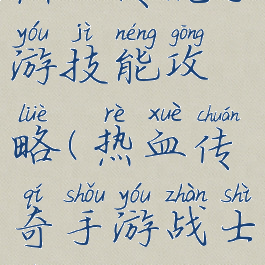 yóu jì néng gōng
游技能攻
lüè rè xuè chuán
略(热血传
qí shǒu yóu zhàn shì
奇手游战士